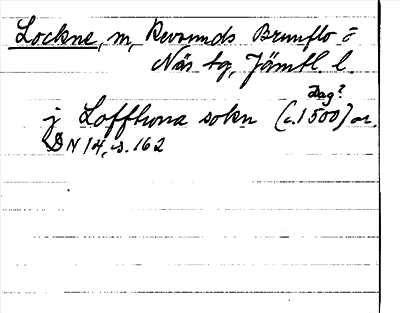 Lockne, m, Revsunds Brunflo o
Näs tg, Jämtl. l.
Dag?
j Loffthona sokn (c. 1500) or.
DN 14, s. 162